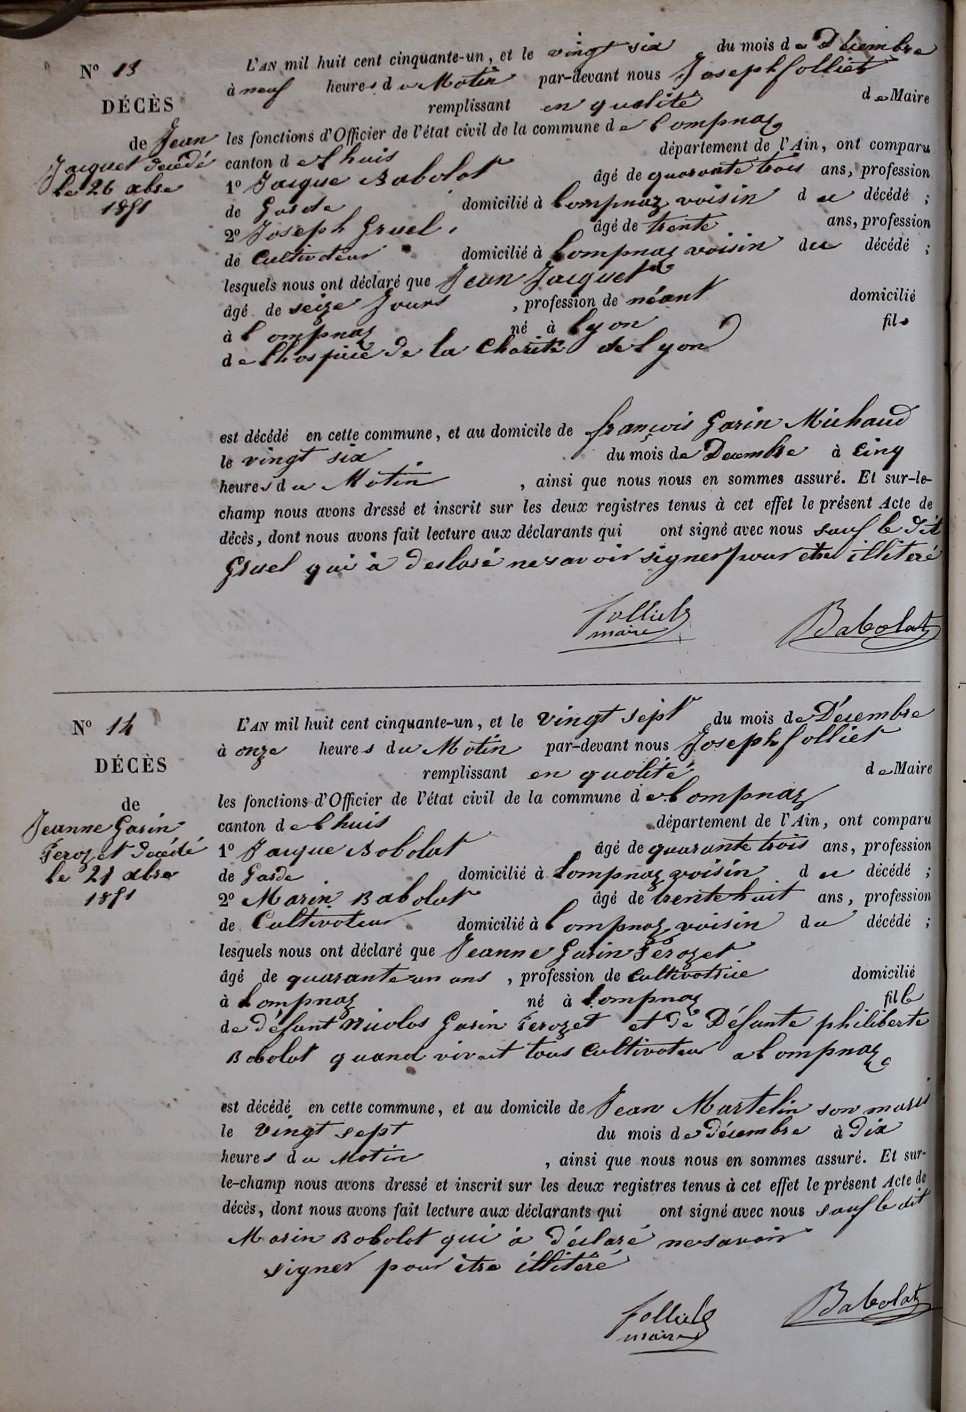 N° 13
DÉCÈS
de Jean
Jacquet décédé
le 26 xbre
1851
L'AN mil huit cent cinquante-un, et le vingt six du mois de Décembre
à neuf heures du Matin par-devant nous Joseph folliet
remplissant en qualité de Maire
les fonctions d'Officier de l'état civil de la commune de Lompnaz
canton de Lhuis département de l'Ain, ont comparu
1° Jacque Babolat âgé de quarante trois ans, profession
de Garde domicilié à Lompnaz voisin du décédé ;
2° Joseph Gruel, âgé de trente ans, profession
de Cultivateur domicilié à Lompnaz voisin du décédé ;
lesquels nous ont déclaré que Jean Jacquet
âgé de seize Jours , profession de néant domicilié
à Lompnaz né à Lyon fils
de Lhospice de la Charité de Lyon
est décédé en cette commune, et au domicile de françois Garin Michaud
le vingt six du mois de Decembre à Cinq
heures du Matin , ainsi que nous nous en sommes assuré. Et sur-le-
champ nous avons dressé et inscrit sur les deux registres tenus à cet effet le présent Acte de
décès, dont nous avons fait lecture aux déclarants qui ont signé avec nous sauf le dit
Gruel qui à declaré ne savoir signer pour etre illitéré
folliet
maire
Babolat
N° 14
DÉCÈS
de
Jeanne Garin
Ferozet décédé
le 27 xbre
1851
L'AN mil huit cent cinquante-un, et le vingt sept du mois de Décembre
à onze heures du Matin par-devant nous Joseph folliet
remplissant en qualité de Maire
les fonctions d'Officier de l'état civil de la commune de Lompnaz
canton de Lhuis département de l'Ain, ont comparu
1° Jacque Babolat âgé de quarante trois ans, profession
de Garde domicilié à Lompnaz voisin du décédé ;
2° Marin Babolat âgé de trente huit ans, profession
de Cultivateur domicilié à Lompnaz voisin du décédé ;
lesquels nous ont déclaré que Jeanne Garin Ferozet
âgé de quarante un ans , profession de cultivatrice domicilié
à Lompnaz né à Lompnaz fille
de défunt Nicolas Garin Ferozet et de Défunte philiberte
Babolat quand vivait tous cultivateur a Lompnaz
est décédé en cette commune, et au domicile de Jean Martelin son marit
le vingt sept du mois de décembre à dix
heures du Matin , ainsi que nous nous en sommes assuré. Et sur-
le-champ nous avons dressé et inscrit sur les deux registres tenus à cet effet le présent Acte de
décès, dont nous avons fait lecture aux déclarants qui ont signé avec nous sauf le dit
Marin Babolat qui à déclaré ne savoir
signer pour être illitéré
folliet
maire
Babolat